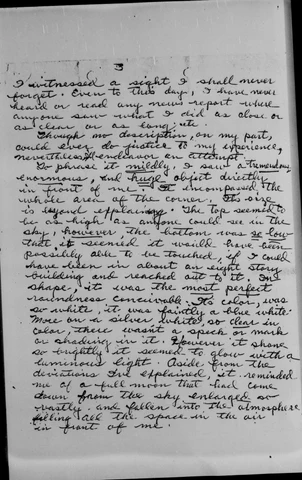 3
I witnessed a sight I shall never
forget. Even to this day, I have never
heard or read any news report where
anyone saw what I did as close or
as clear or as long, etc.
Though no description, on my part,
could ever do justice to my experience,
nevertheless, I endeavor an attempt.
To phrase it mildly, I saw a tremendous,
enormous, and huge object directly
in front of me. It encompassed the
whole area of the corner. Its size
is beyond explaining. The top seemed to
be as high as anyone could see in the
sky, however, the bottom was so low
that it seemed it would have been
possibly able to be touched, if I could
have been in about an eight story
building and reached out to it. In
shape, it was the most perfect
roundness conceivable. Its color, was
so white, it was faintly a blue white.
More on a silver white, so clear in
color, there wasn't a speck or mark
or shading in it. However it shone
so brightly it seemed to glow with a
luminous light. Aside from the
deviations I've explained, it reminded
me of a full moon that had come
down from the sky enlarged so
vastly and fallen into the atmosphere
filling all the space in the air
in front of me.